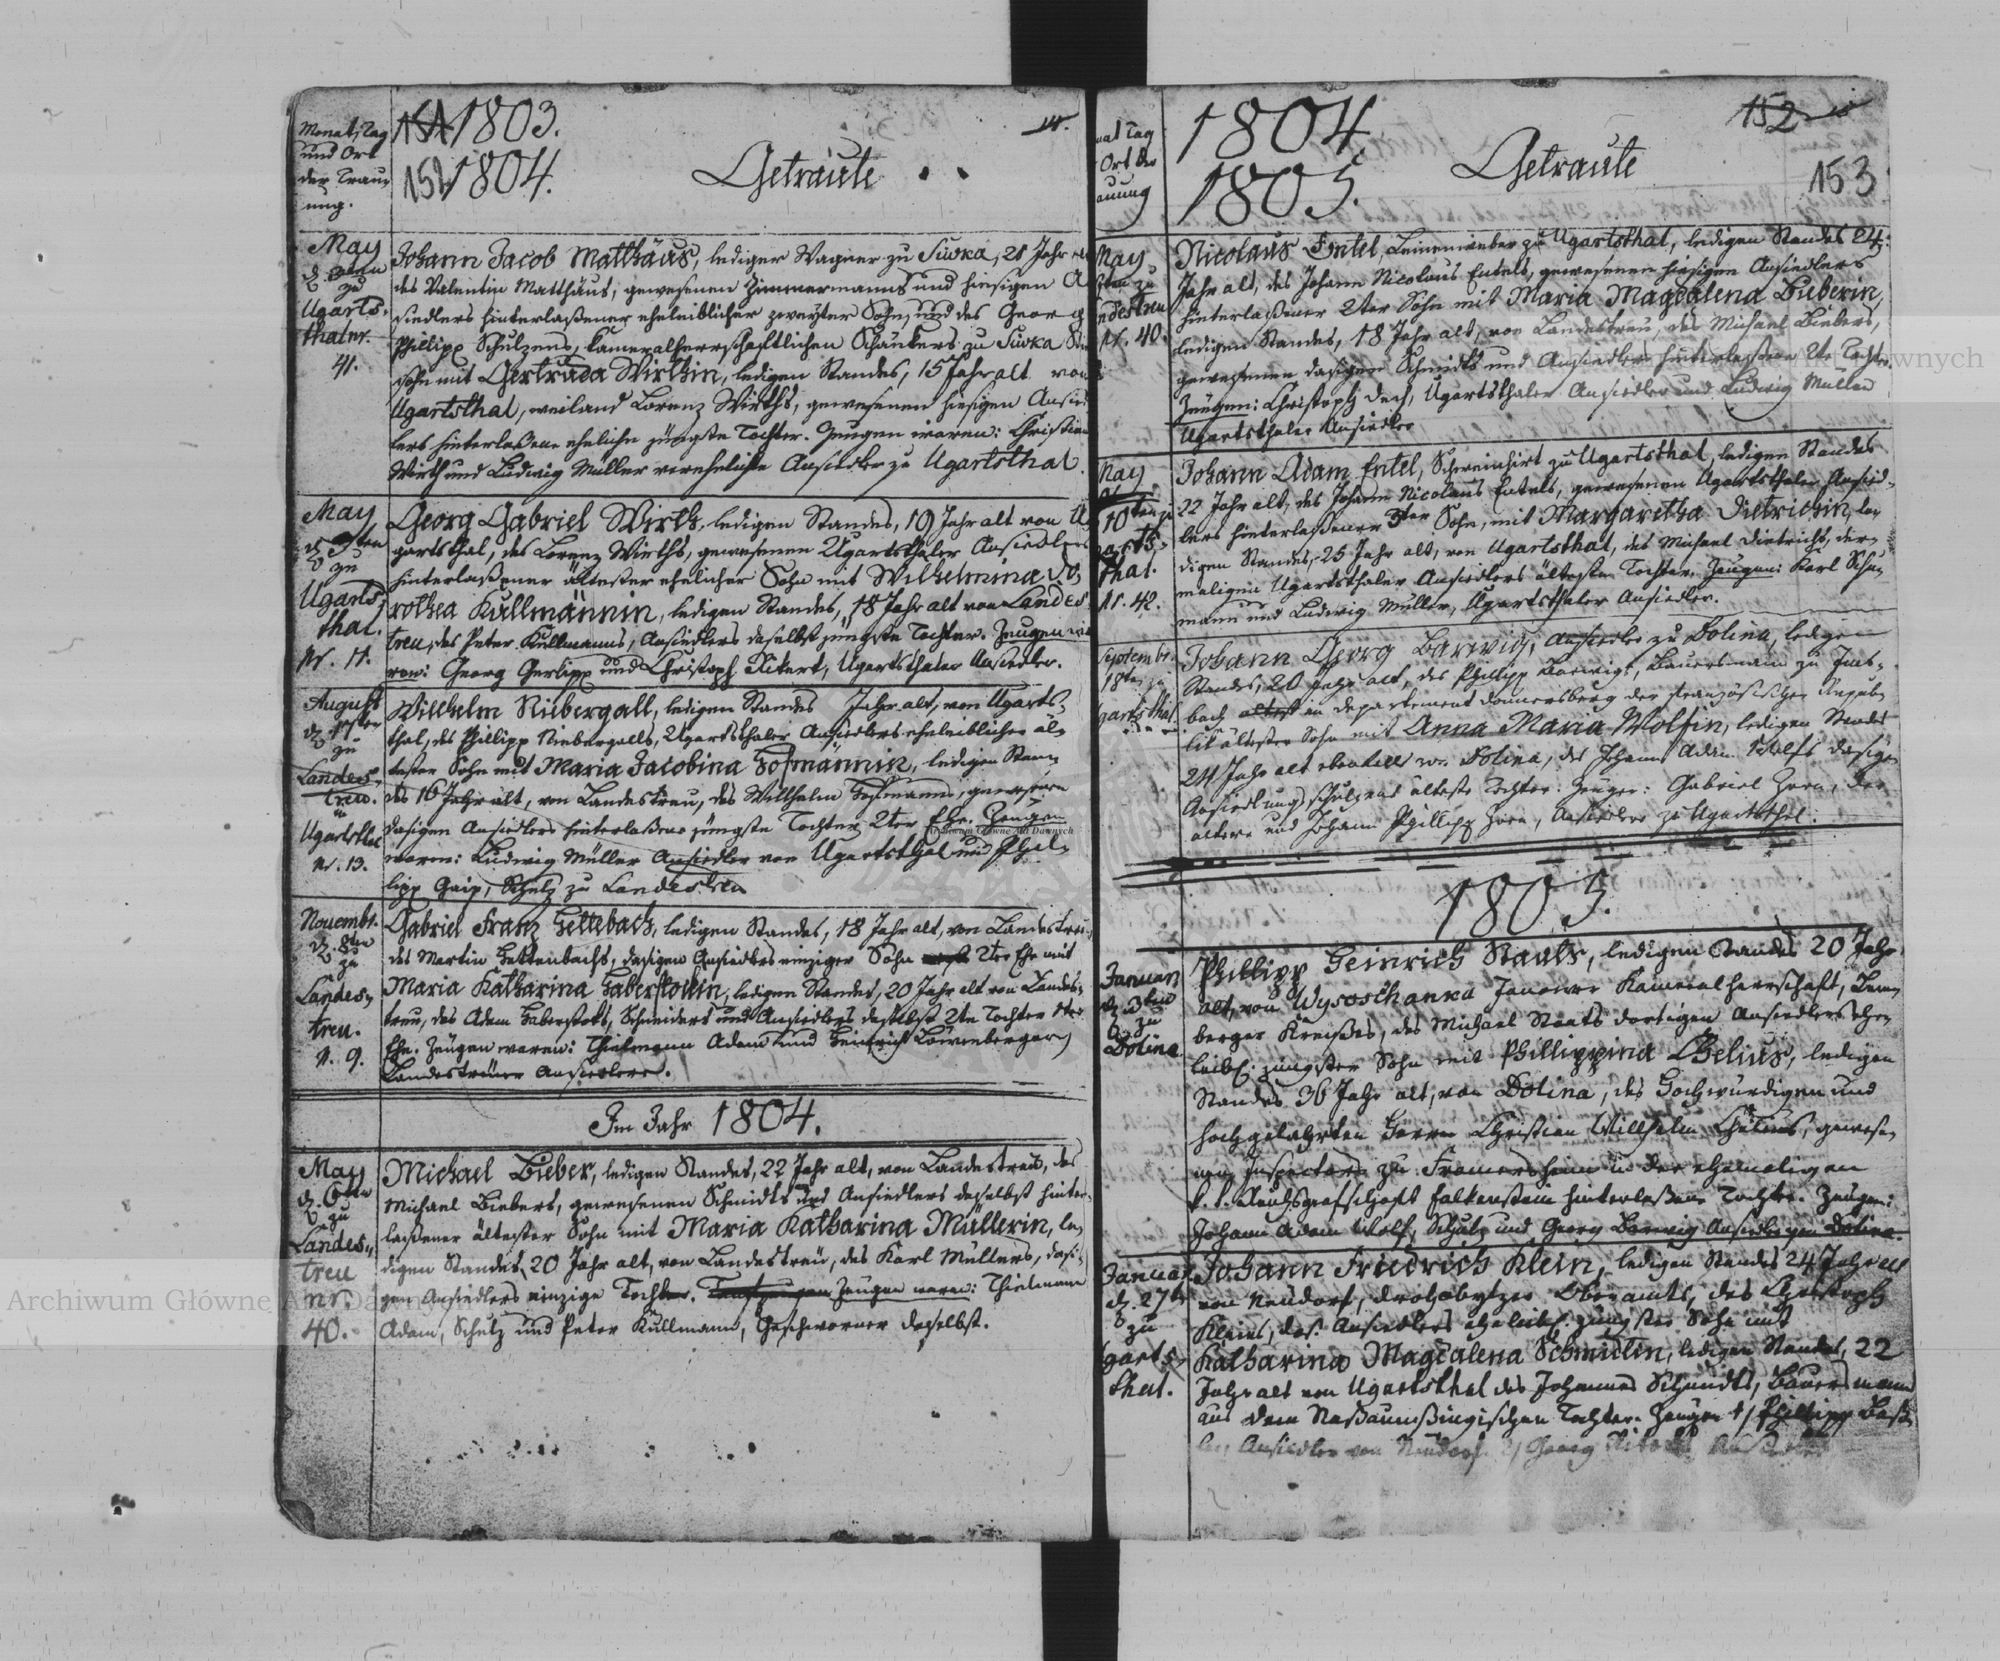 Monat, Tag
und Ort
der Trau-
ung.
151 1803.
152 1804.
Getraute
May
d. ten
zu
Ugarts-
thal nr.
41.
Johann Jacob Matthäus, lediger Wagner zu Siwka, 21 Jahr
des Valentin Matthäus, gewesenen Zimmermanns und hiesigen A
siedlers hinterlaßener eheleiblicher zweyter Sohn, und des Georg
Phillipp Schulzens, kameralherrschaftlichen Schänkers zu Siwka
sohn mit Gertruda Wirthin, ledigen Standes, 15 Jahr alt von
Ugartsthal, weiland Lorenz Wirths, gewesenen hiesigen Ansied
lers hinterlaßene eheliche jüngste Tochter. Zeugen waren: Christian
Wirth und Ludwig Müller verehelichte Ansiedler zu Ugartsthal.
May
d. ten
zu
Ugarts-
thal.
Nr. 11.
Georg Gabriel Wirth, ledigen Standes, 19 Jahr alt von U
gartsthal, des Lorenz Wirths, gewesenen Ugartsthaler Ansiedlers
hinterlaßener ältester ehelicher Sohn mit Wilhelmina Do
rothea Kullmännin, ledigen Standes, 18 Jahr alt von Landes
treu, des Peter Kullmanns, Ansiedlers daselbst jüngste Tochter. Zeugen wa
ren: Georg Gerlipp und Christoph Rikert, Ugartsthaler Ansiedler.
August
d. 17ten
zu
Landes-
treu.
in
Ugartsthal
Nr. 13.
Willhelm Niebergall, ledigen Standes Jahr alt, von Ugarts-
thal, des Phillipp Niebergalls, Ugartsthaler Ansiedlers eheleiblicher äl-
tester Sohn mit Maria Jacobina Hofmännin, ledigen Stan-
des 16 Jahr alt, von Landestreu, des Willhelm Hofmanns, gewesenen
dasigen Ansiedlers hinterlaßene jüngste Tochter 2ter Ehe. Zeugen
waren: Ludwig Müller Ansiedler von Ugartsthal und Phil-
lipp Gaip, Schulz zu Landestreu
Novembr.
d. 8ten
zu
Landes-
treu.
N. 9.
Gabriel Franz Hettebach, ledigen Standes, 18 Jahr alt, von Landestreu,
des Martin Hettenbachs, dasigen Ansiedlers einziger Sohn 2ter Ehe mit
Maria Katharina Haberstockin, ledigen Standes, 20 Jahr alt von Landes-
treu, des Adam Haberstoks, Schneiders und Ansiedlers daselbst 2te Tochter
Ehe. Zeugen waren: Thielmann Adam und Heinrich Löwenberger,
Landestreuer Ansiedlers.
Im Jahr 1804.
May
d. 6ten
zu
Landes-
treu
nr.
40.
Michael Bieber, ledigen Standes, 22 Jahr alt, von Landestreu, des
Michael Biebers, gewesenen Schmidts und Ansiedlers daselbst hinter-
laßener ältester Sohn mit Maria Katharina Müllerin, le-
digen Standes, 20 Jahr alt, von Landestreu, des Karl Müllers, dasi-
gen Ansiedlers einzige Tochter. Zeugen waren: Thielmann
Adam, Schulz und Peter Kullmann, Geschworner daselbst.
nat Tag
Ort der
auung
1804.
1805.
Getraute
152
153
May
ten zu
ndestreu
N. 40.
Nicolaus Entel, Leinenweber zu Ugartsthal, ledigen Standes 24
Jahr alt, des Johann Nicolaus Entels, gewesenen hiesigen Ansiedlers
hinterlaßener 2ter Sohn mit Maria Magdalena Bieberin,
ledigen Standes, 18 Jahr alt, von Landestreu, des Michael Biebers,
gewesenen dasigen Schmidts und Ansiedlers hinterlaßene 2te Tochter.
Zeugen: Christoph Dech, Ugartsthaler Ansiedler und Ludwig Müller
Ugartsthaler Ansiedler
May
10ten zu
garts-
thal.
Nr. 42.
Johann Adam Entel, Schweinhirt zu Ugartsthal, ledigen Standes
22 Jahr alt, des Johann Nicolaus Entels, gewesenen Ugartsthaler Ansied-
lers hinterlaßener 3ter Sohn, mit Margaretha Dietrichin, le-
digen Standes, 25 Jahr alt, von Ugartsthal, des Michael Dietrichs, der-
maligen Ugartsthaler Ansiedlers älteste Tochter. Zeugen: Karl Schu-
mann und Ludwig Müller, Ugartsthaler Ansiedler.
Septembr.
18ten zu
gartsthal
Johann Georg Barwig, Ansiedler zu Dolina, ledigen
Standes, 20 Jahr alt, des Phillipp Barwigs, Bauersmann zu Ims-
bach im departement Donnersberg der französischen Repub-
lik ältester Sohn mit Anna Maria Wolfin, ledigen Standes
24 Jahr alt ebenfalls von Dolina, des Johann Adam Wolfs dasigen
Ansiedlungsschulzens älteste Tochter. Zeugen: Gabriel Horn, der
ältere und Johann Phillipp Horn, Ansiedler zu Ugartsthal.
1805.
Januar
d. 3ten
zu
Dolina.
Phillipp Heinrich Staats, ledigen Standes 20 Jahr
alt, von Wysoschanka Janower Kameralherrschaft, Lem-
berger Kreißes, des Michael Staats dortigen Ansiedlers ehe-
leibl. jüngster Sohn mit Phillippina Chelius, ledigen
Standes 36 Jahr alt, von Dolina, des Hochwürdigen und
hochgelahrten Herrn Christian Willhelm Chelius, gewese-
nen Inspectors zu Framersheim in der ehemaligen
k. k. Reichsgrafschaft Falkenstein hinterlaßene Tochter. Zeugen:
Johann Adam Wolf, Schulz und Georg Barwig Ansiedler von Dolina.
Januar
d. 27t
zu
garts-
thal.
Johann Friedrich Klein, ledigen Standes 24 Jahr alt
von Neudorf, Drohobytzer Oberamts, des Christoph
Kleins, das. Ansiedlers eheleibl. jüngster Sohn mit
Katharina Magdalena Schmidtin, ledigen Standes, 22
Jahr alt von Ugartsthal des Johannes Schmidts, Bauersmann
aus dem Naßauusingischen Tochter. Zeugen 1) Phillipp
Ansiedler von Neudorf. 2) Georg
Archiwum Główne Akt Dawnych